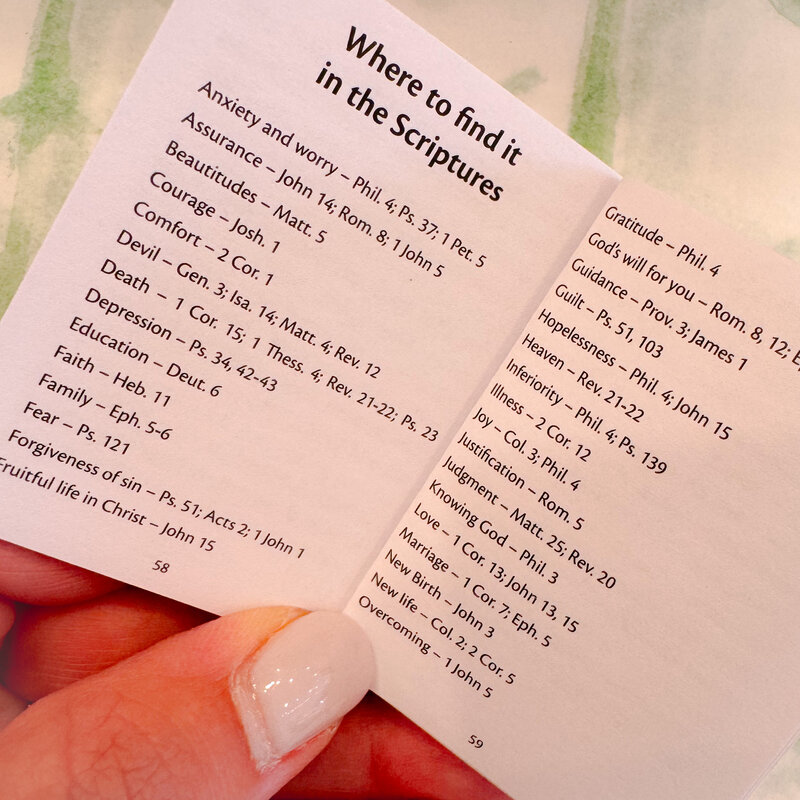 Where to find it
in the Scriptures
Anxiety and worry – Phil. 4; Ps. 37; 1 Pet. 5
Assurance – John 14; Rom. 8; 1 John 5
Beautitudes – Matt. 5
Courage – Josh. 1
Comfort – 2 Cor. 1
Devil – Gen. 3; Isa. 14; Matt. 4; Rev. 12
Death – 1 Cor. 15; 1 Thess. 4; Rev. 21-22; Ps. 23
Depression – Ps. 34, 42-43
Education – Deut. 6
Faith – Heb. 11
Family – Eph. 5-6
Fear – Ps. 121
Forgiveness of sin – Ps. 51; Acts 2; 1 John 1
Fruitful life in Christ – John 15
58
Gratitude – Phil. 4
God's will for you – Rom. 8, 12;
Guidance – Prov. 3; James 1
Guilt – Ps. 51, 103
Hopelessness – Phil. 4; John 15
Heaven – Rev. 21-22
Inferiority – Phil. 4; Ps. 139
Illness – 2 Cor. 12
Joy – Col. 3; Phil. 4
Justification – Rom. 5
Judgment – Matt. 25; Rev. 20
Knowing God – Phil. 3
Love – 1 Cor. 13; John 13, 15
Marriage – 1 Cor. 7; Eph. 5
New Birth – John 3
New life – Col. 2; 2 Cor. 5
Overcoming – 1 John 5
59